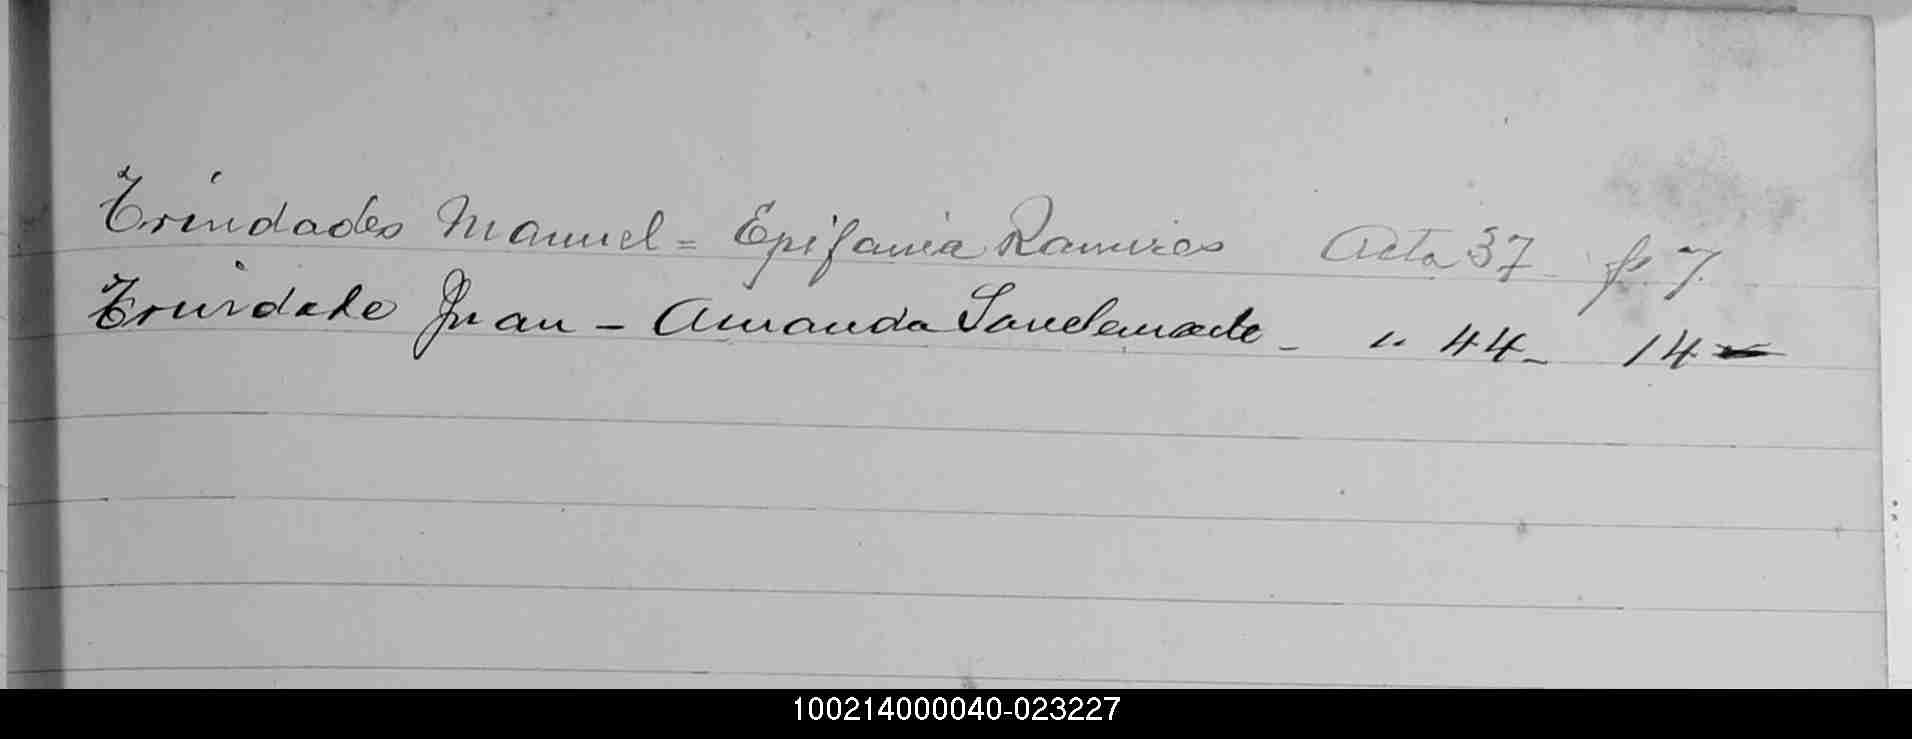 Trindades Manuel = Epifania Ramires Acta 37 f. 7.
Trindade Juan - Amanda " 44- 14-
100214000040-023227